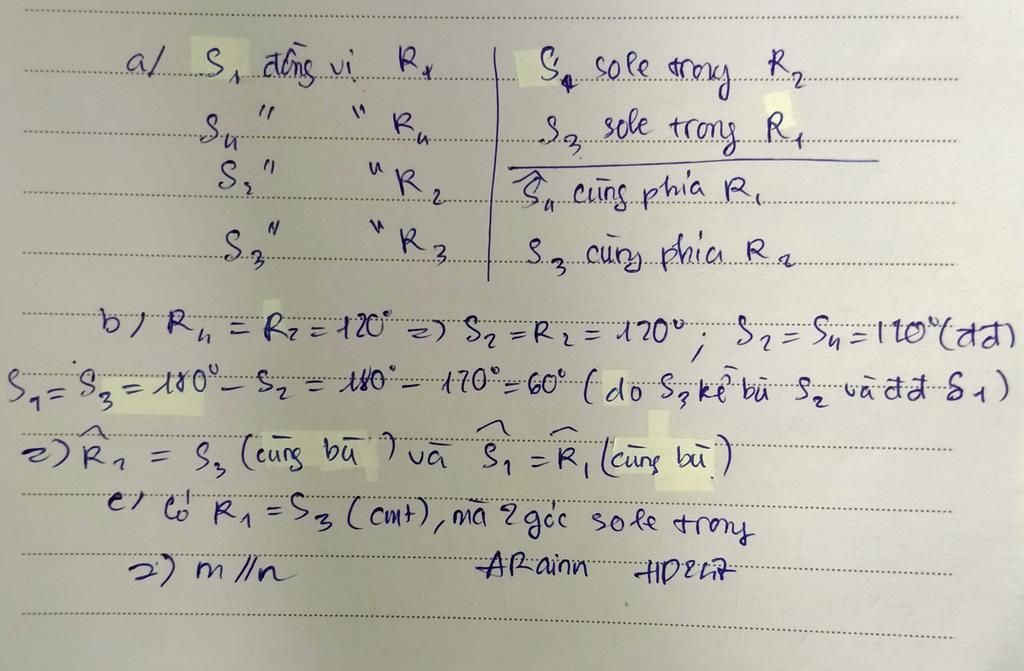 a/ S₁ đồng vị R₁ | S₄ sole trong R₂
S₄ " " R₄ | S₃ sole trong R₁
S₂ " " R₂ | Ŝ₄ cùng phía R₁
S₃ " " R₃ | S₃ cùng phía R₂
b/ R₄ = R₂ = 120° => S₂ = R₂ = 120° ; S₂ = S₄ = 120° (đđ)
S₁ = S₃ = 180° - S₂ = 180° - 120° = 60° (do S₃ kề bù S₂ và đđ S1)
=> R̂₁ = S₃ (cùng bù) và Ŝ₁ = R̂₁ (cùng bù)
c/ Có R₁ = S₃ (cmt), mà 2 góc sole trong
=> m // n ARainn HD247